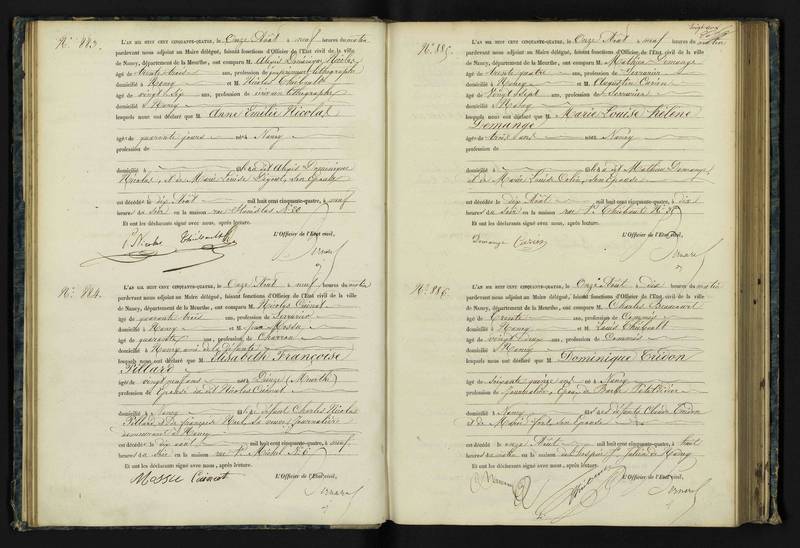 N°. 883.
L'AN MIL HUIT CENT CINQUANTE-QUATRE, le Onze Août à neuf heures du matin
pardevant nous adjoint au Maire délégué, faisant fonctions d'Officier de l'Etat civil de la ville
de Nancy, département de la Meurthe, ont comparu M. Alexis Dominique Nicolas
âgé de trente trois ans, profession d'imprimeur lithographe
domicilié à Nancy et M. Nicolas Thiébault
âgé de vingt six ans, profession d'écrivain lithographe
domicilié à Nancy
lesquels nous ont déclaré que M. Anne Emilie Nicolas
âgée de quarante jours née à Nancy
profession de
domiciliée à fille dudit Alexis Dominique
Nicolas, et de Marie Louise son Epouse
est décédée le dix Août mil huit cent cinquante-quatre, à neuf
heures du soir en la maison rue Stanislas N°
Et ont les déclarants signé avec nous, après lecture.
L'Officier de l'Etat civil,
Nicolas Thiébault
N°. 884.
L'AN MIL HUIT CENT CINQUANTE-QUATRE, le Onze Août à neuf heures du matin
pardevant nous adjoint au Maire délégué, faisant fonctions d'Officier de l'Etat civil de la ville
de Nancy, département de la Meurthe, ont comparu M. Nicolas Cuenot
âgé de quarante trois ans, profession de Serrurier
domicilié à Nancy et M. Jean Massu
âgé de quarante ans, profession de Charron
domicilié à Nancy ami de la Défunte
lesquels nous ont déclaré que M. Elisabeth Françoise
Pillard
âgée de vingt neuf ans née à Dieuze (Meurthe)
profession de Epouse dudit Nicolas Cuenot
domiciliée à Nancy fille de défunt Charles Nicolas
Pillard, et de Françoise sa veuve, Journalière
demeurant à Nancy
est décédée le dix août mil huit cent cinquante-quatre, à neuf
heures du soir en la maison rue St. Michel N°
Et ont les déclarants signé avec nous, après lecture.
L'Officier de l'Etat civil,
Massu Cuenot
N°. 885.
L'AN MIL HUIT CENT CINQUANTE-QUATRE, le Onze Août à neuf heures du matin
pardevant nous adjoint au Maire délégué, faisant fonctions d'Officier de l'Etat civil de la ville
de Nancy, département de la Meurthe, ont comparu M. Mathieu Demange
âgé de trente quatre ans, profession de Serrurier
domicilié à Nancy et M. Augustin
âgé de vingt sept ans, profession de Serrurier
domicilié à Nancy
lesquels nous ont déclaré que M. Marie Louise Hélène
Demange
âgée de trois ans née à Nancy
profession de
domiciliée à fille dudit Mathieu Demange,
et de Marie Louise Colin, son Epouse
est décédée le dix Août mil huit cent cinquante-quatre, à dix
heures du soir en la maison rue St. Thiébault N°
Et ont les déclarants signé avec nous, après lecture.
L'Officier de l'Etat civil,
Demange
N°. 886.
L'AN MIL HUIT CENT CINQUANTE-QUATRE, le Onze Août à dix heures du matin
pardevant nous adjoint au Maire délégué, faisant fonctions d'Officier de l'Etat civil de la ville
de Nancy, département de la Meurthe, ont comparu M. Charles
âgé de trente ans, profession de Commis
domicilié à Nancy et M. Louis Thiébault
âgé de vingt deux ans, profession de Commis
domicilié à Nancy
lesquels nous ont déclaré que M. Dominique Tridon
âgé de soixante quinze ans né à Nancy
profession de Journalier, Epoux de Barbe
domicilié à Nancy fils de défunts Tridon
et de Marie son Epouse
est décédé le onze Août mil huit cent cinquante-quatre, à huit
heures du matin en la maison de l'hospice St. Julien à Nancy
Et ont les déclarants signé avec nous, après lecture.
L'Officier de l'Etat civil,